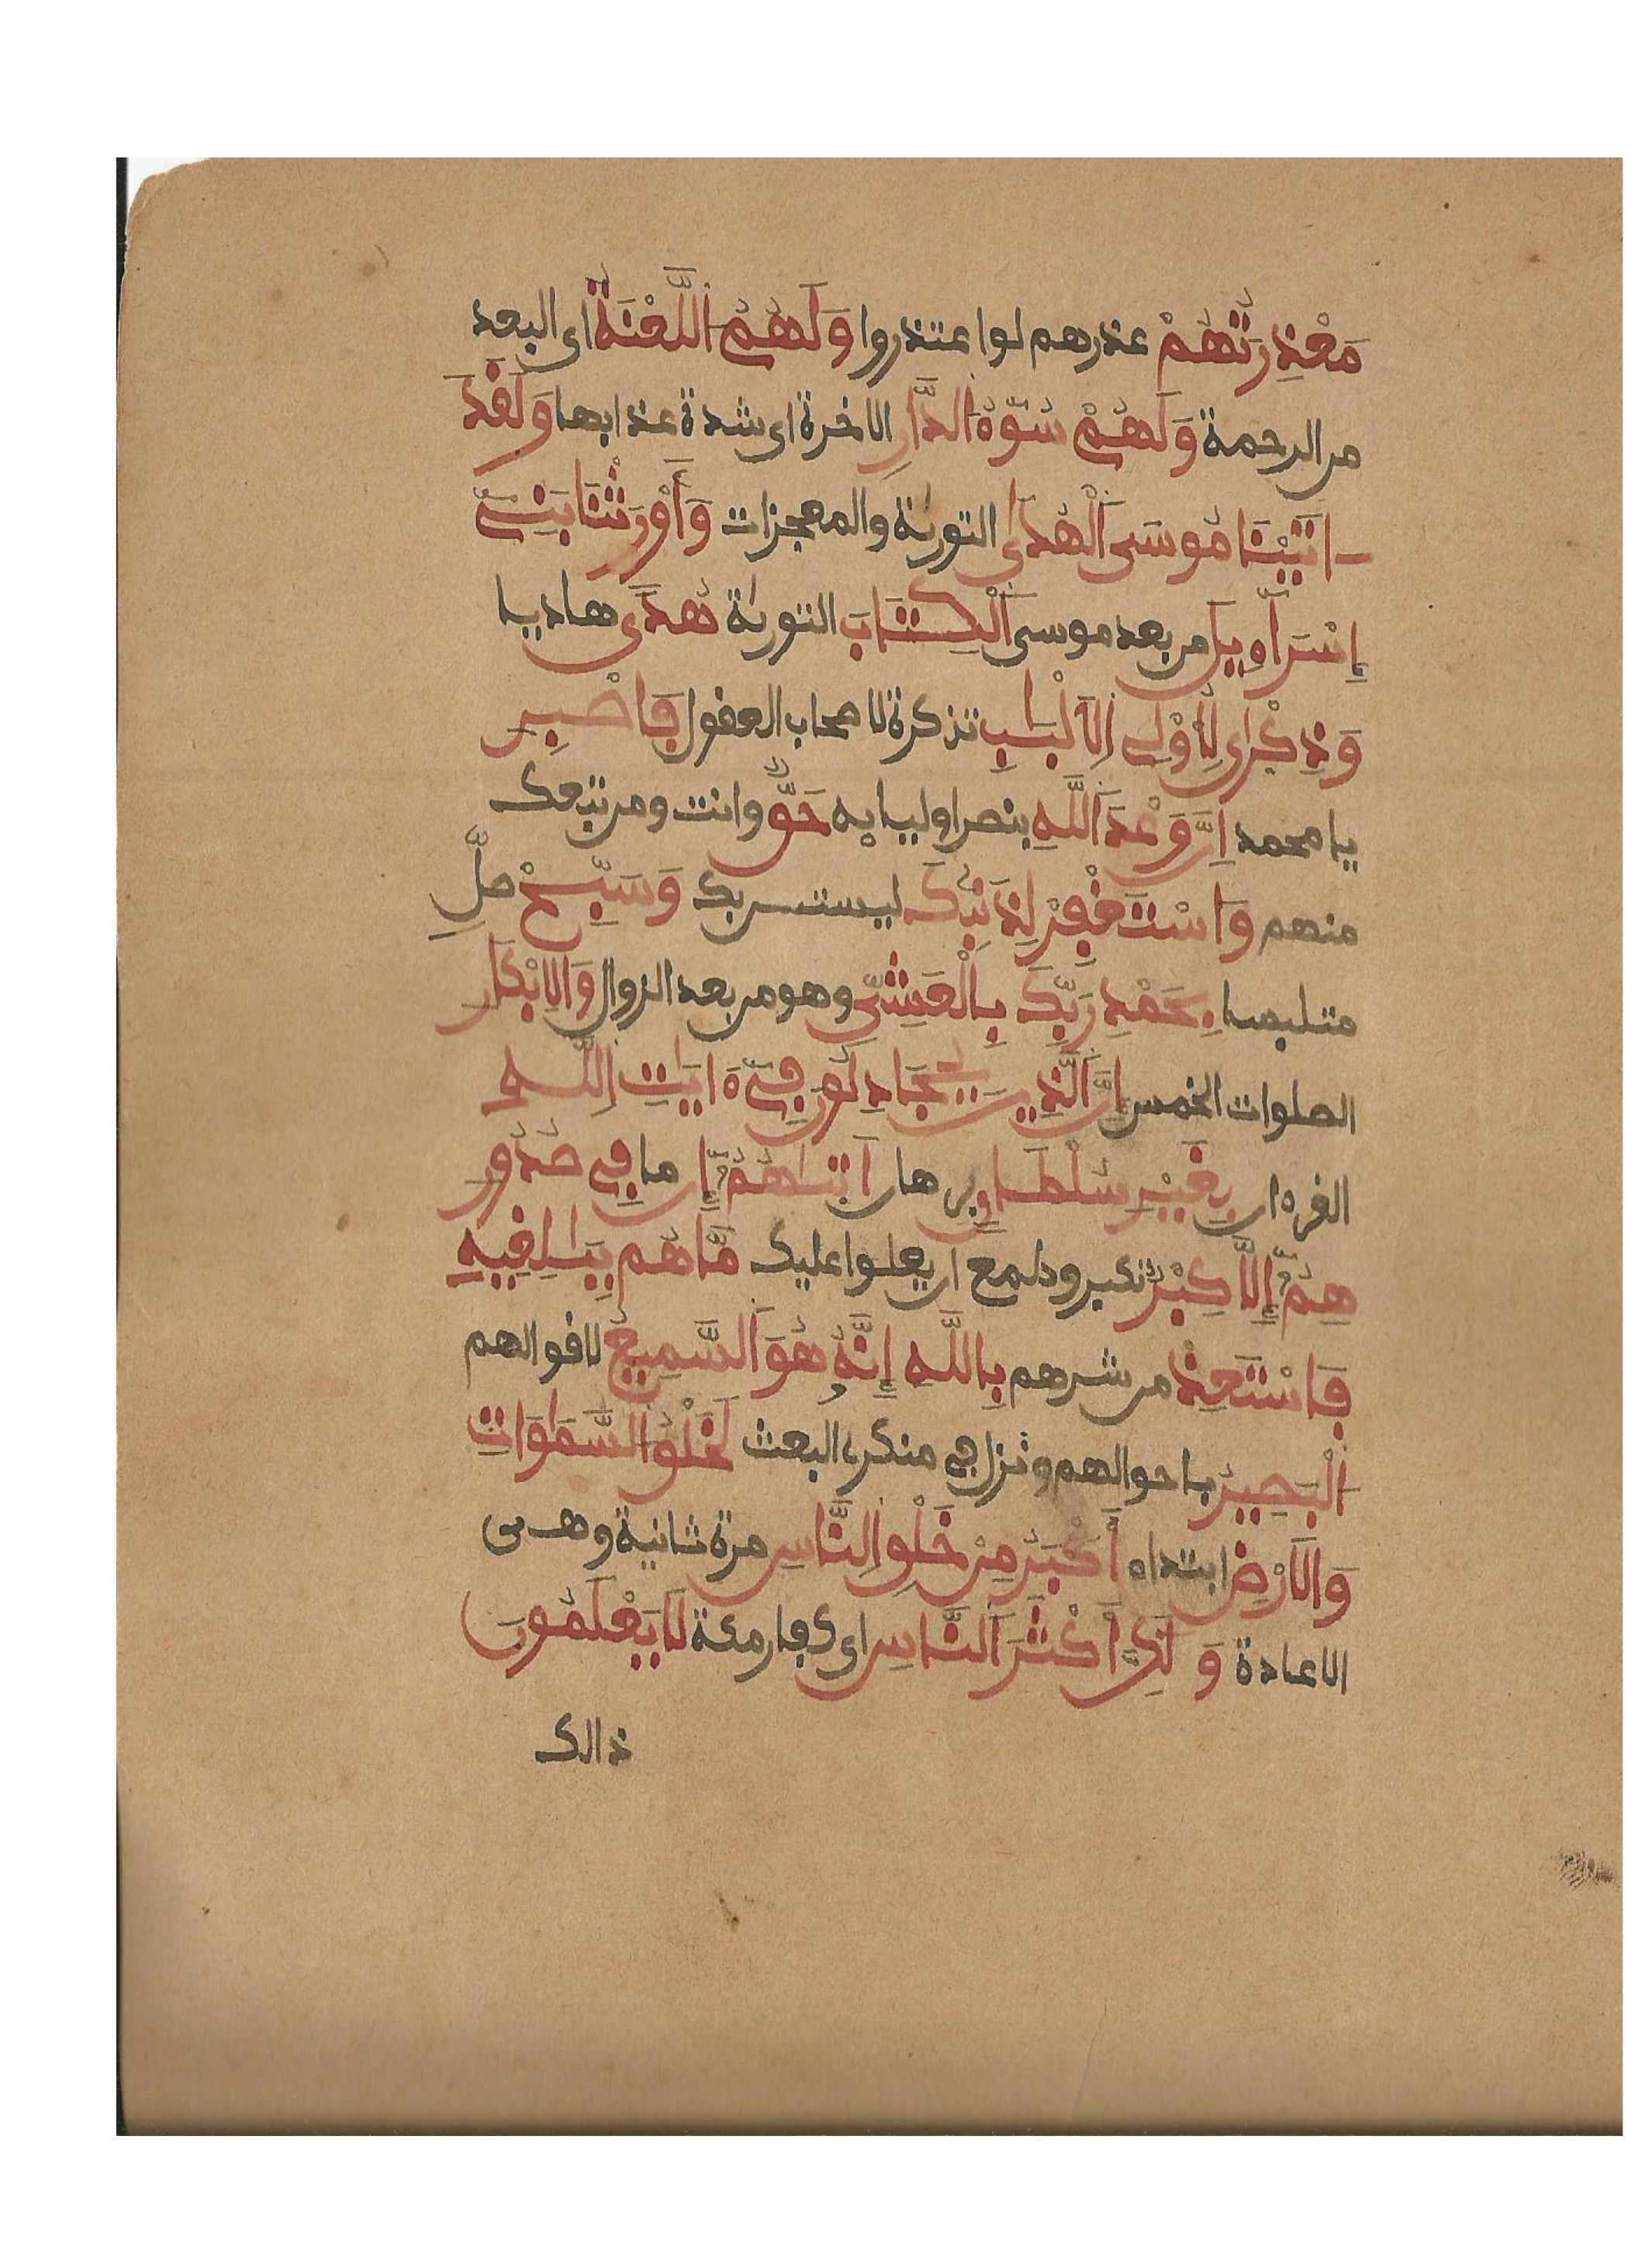 مَعْذِرَتُهُمْ عذرهم لو اعتذروا وَلَهُمُ اَللَّعْنَةُ اى البعد
من الرحمة وَلَهُمْ سُوٓءُ اَلدَّارِ الاخرة اى شدة عذابها وَلَقَدَ
اتَيْنَا مُوسَى اَلْهُدَىٰ التورىٰة والمعجزات وَأَوْرَثْنَا بَنِےٓ
إِسْرَآءِيلَ من بعد موسى اَلْكِتَابَ التورىٰة هُدىً هاديا
وَذِكْرَىٰ لِأُوْلِے اِلَالْبَٰبِ تذكرة لاصحاب العقول فَاصْبِرِ
يا محمد اِنَّ وَعْدَ اَللَّهِ بنصر اوليايه حَقٌّ وانت ومن تبعك
منهم وَاسْتَغْفِرْ لِذَنۢبِكَ ليستن بك وَسَبِّحْ صلِّ
متلبسا بِحَمْدِ رَبِّكَ بِالْعَشِيِّ وهو من بعد الزوال وَالِابْكٰرِ
الصلوات الخمس إِنَّ اَلَّذِينَ يُجَادِلُونَ فِےٓ ءَايَٰتِ اِللَّهِ
القرءان بِغَيْرِ سُلْطَٰنٍ برهان اَتَىٰهُمُۥٓ إِن ما فِے صُدُورِ
هِمُۥٓ إِلَّا كِبْرٌ تكبر وطمع ان يعلوا عليك مَّا هُم بِبَٰلِغِيهِ
فَاسْتَعِذْ من شرهم بِاللَّهِ إِنَّهُۥ هُوَ اَلسَّمِيعُ لاقوالهم
اُلْبَصِيرُ باحوالهم ونزل فى منكرى البعث لَخَلْقُ اُلسَّمَٰوَاتِ
وَالَارْضِ ابتداء أَكْبَرُ مِنْ خَلْقِ اِلنَّاسِ مرة ثانية وهى
الاعادة وَلَٰكِنَّ أَكْثَرَ اَلنَّاسِ اى كفار مكة لَا يَعْلَمُونَ
ذالك